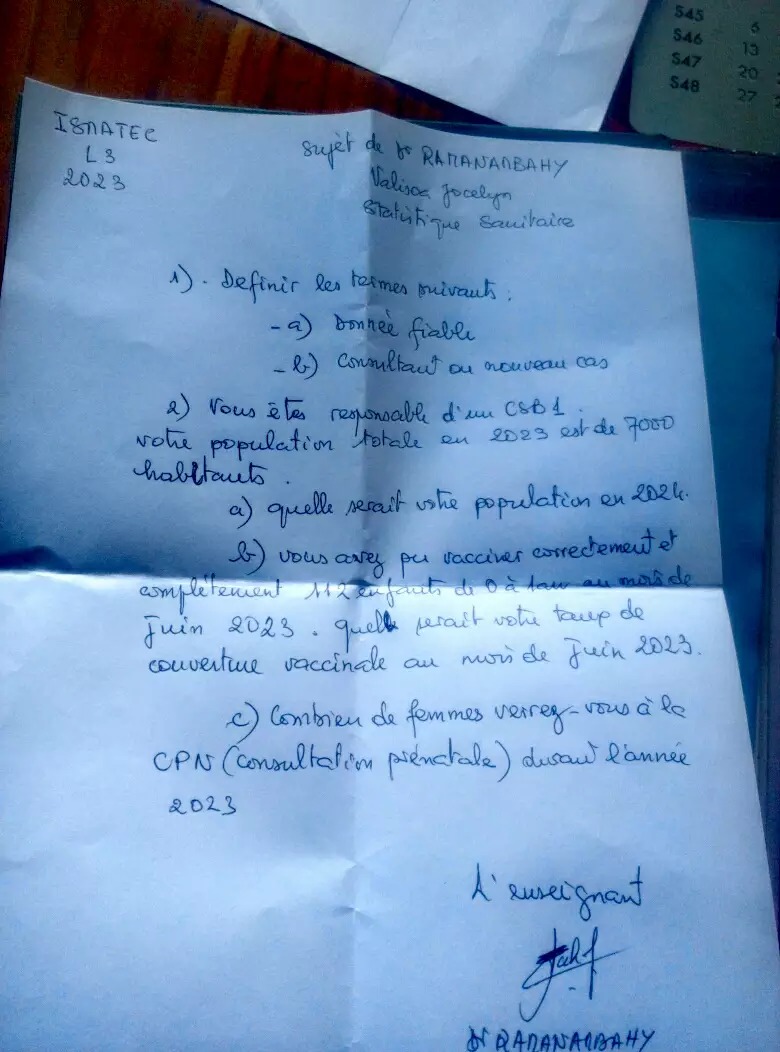 S45 6
S46 13
S47 20
S48 27
ISMATEC
L3
2023
Sujèt de Dr RAMANANBAHY
Valisoa Jocelyn
Statistique Sanitaire
1). Definir les termes suivants :
- a) Donnée fiable
- b) Consultant ou nouveau cas
2) Vous êtes responsable d'un CSB1.
votre population totale en 2023 est de 7000
habitants.
a) quelle serait votre population en 2024.
b) vous avez pu vacciner correctement et
complètement 112 enfants de 0 à 1an au mois de
Juin 2023. quelle serait votre taux de
couverture vaccinale au mois de Juin 2023.
c) Combien de femmes verrez-vous à la
CPN (consultation prénatale) durant l'année
2023
L'enseignant
Dr RAMANANBAHY